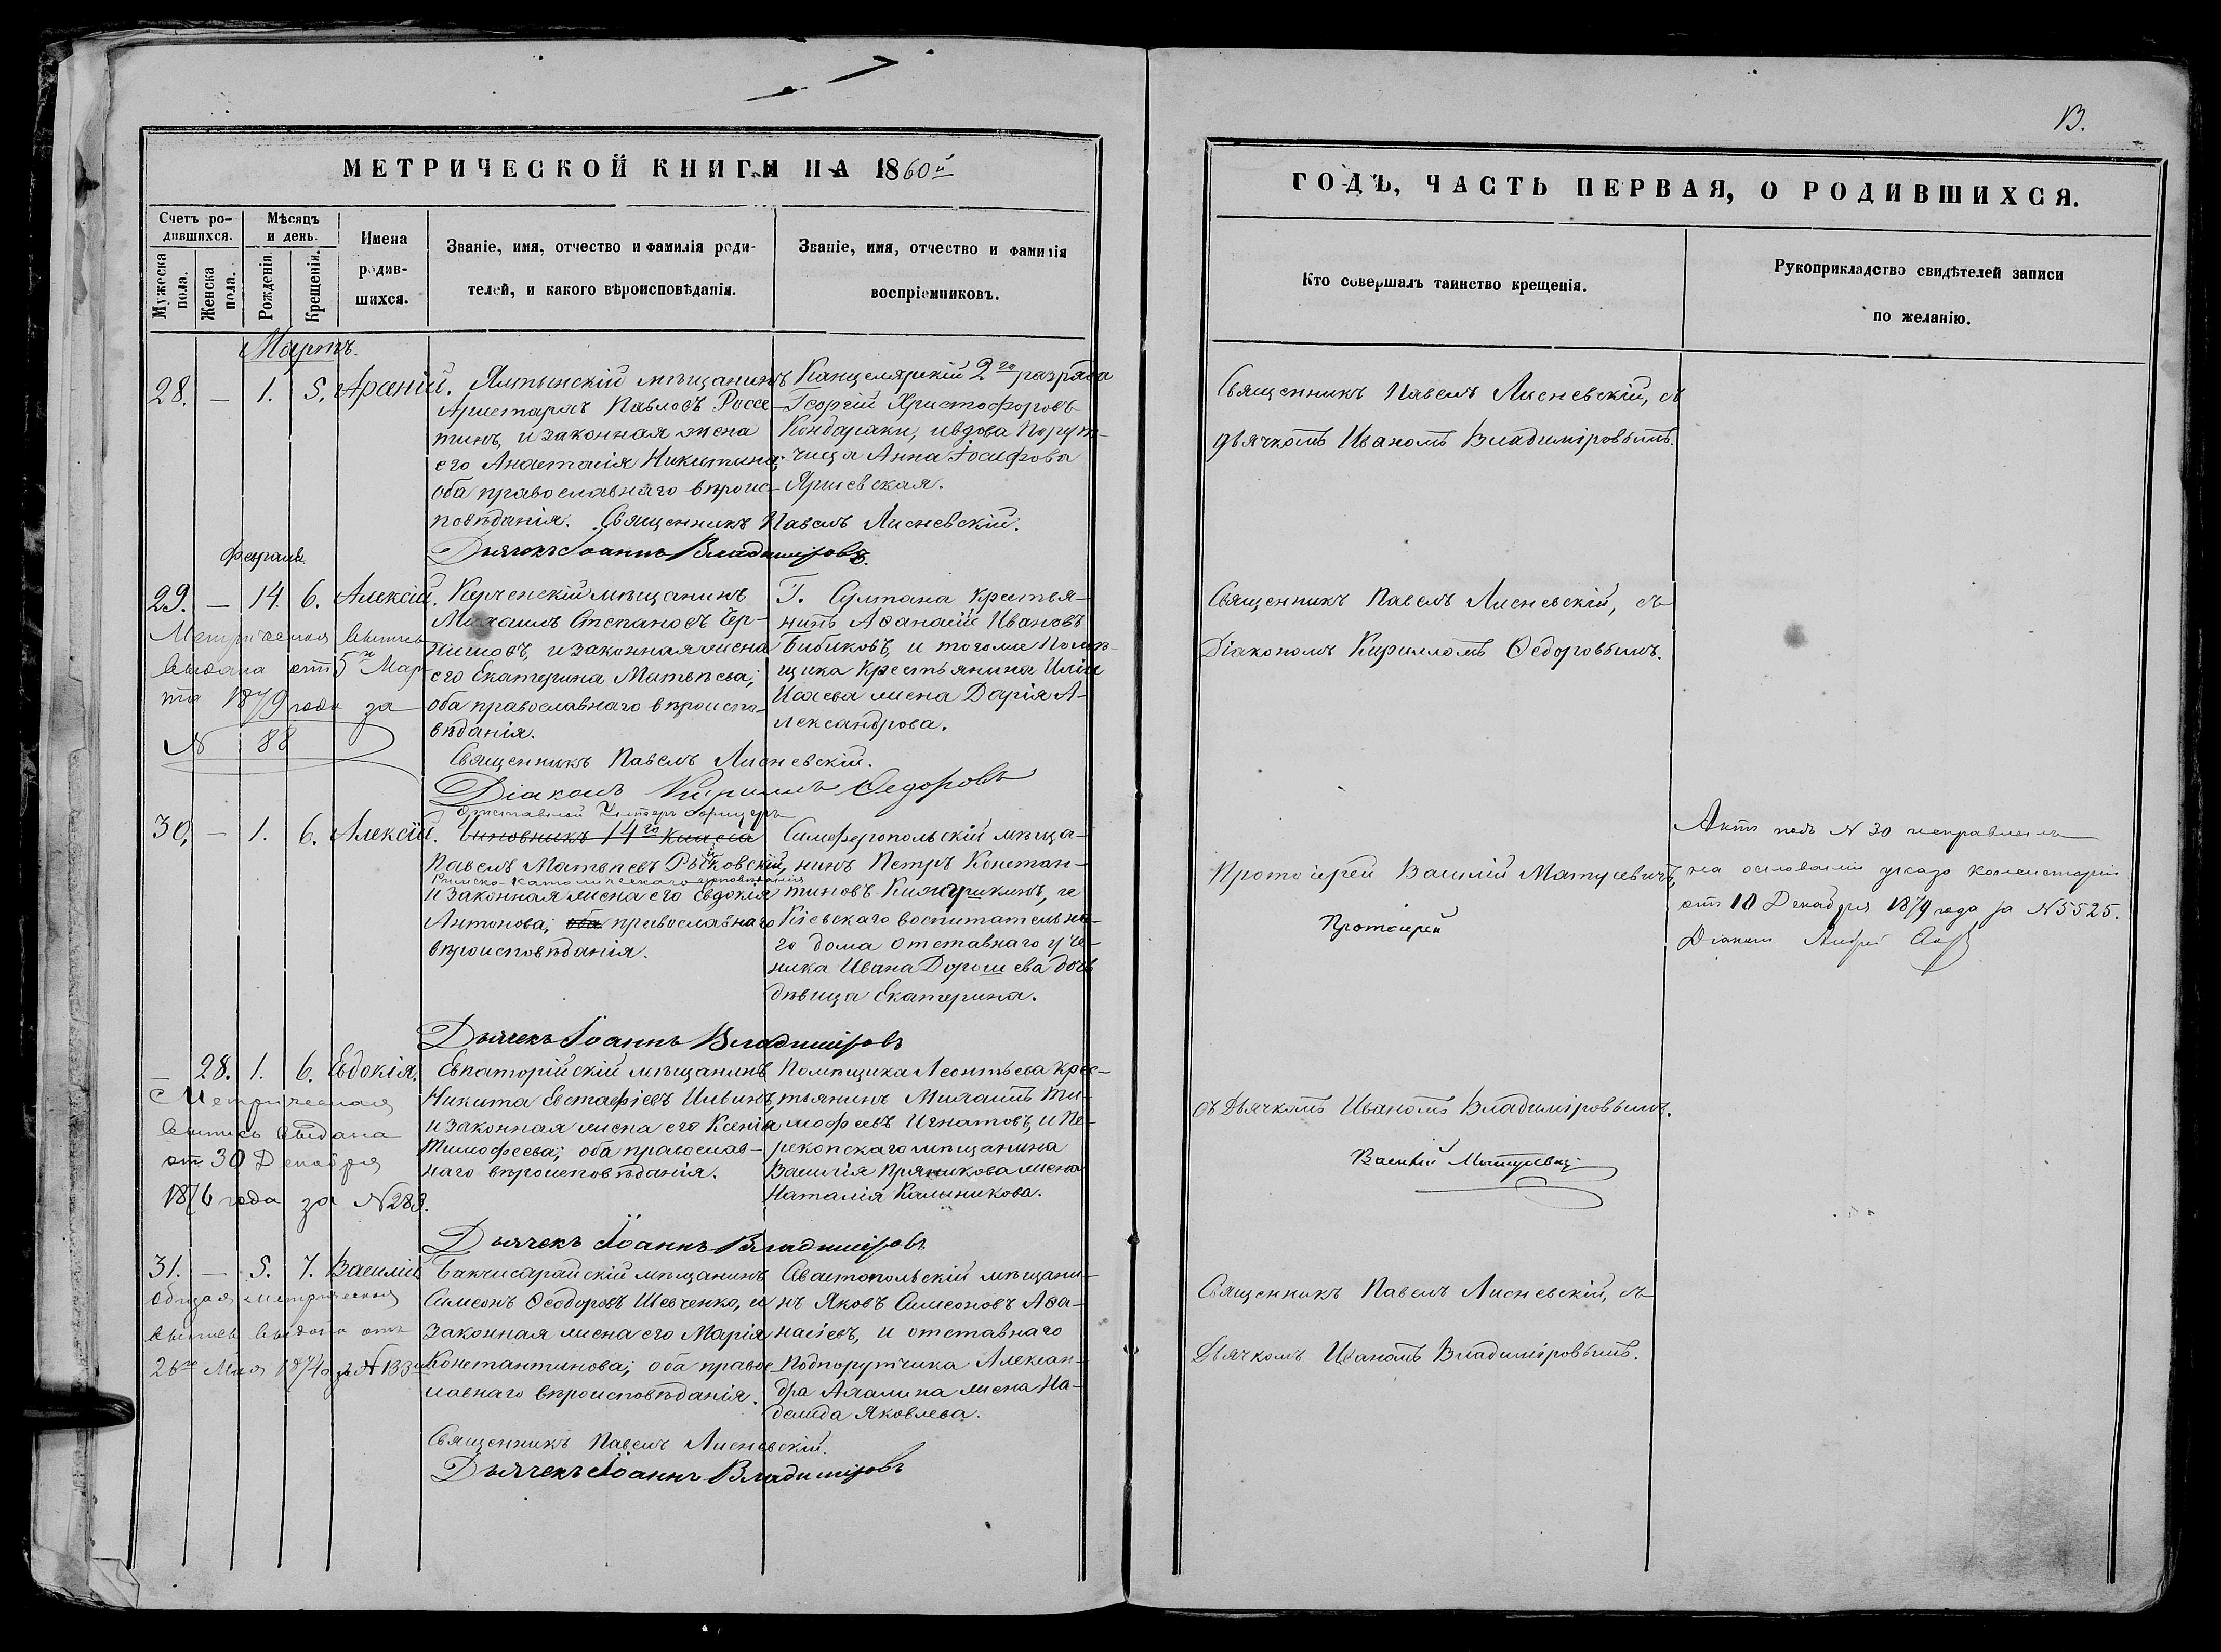 13.
МЕТРИЧЕСКОЙ КНИГИ НА 1860й
Счетъ ро-
дившихся.
Мужеска пола.
Женска пола.
Мѣсяцъ и день.
Рожденія.
Крещенія.
Имена
родив-
шихся.
Званіе, имя, отчество и фамилія роди-
телей, и какого вѣроисповѣданія.
Званіе, имя, отчество и фамилія
воспріемниковъ.
Мартъ.
28. — 1. 5. Арсеній.
Ялтынскій мѣщанинъ
Аристархъ Павловъ Россе-
тинъ, и законная жена
его Анастасія Никитина;
оба православнаго вѣроис-
повѣданія. Священникъ Павелъ Лисневскій.
Дьячекъ Іоаннъ Владиміровъ.
Канцелярскій 2го разряда
Георгій Христофоровъ
Кондараки, и вдова Порут-
чица Анна Іосифова
Яришевская.
Февраль.
29. — 14. 6. Алексій.
Метрическая выпись
выдана отъ 5го Мар-
та 1879 года за
№ 88
Керченскій мѣщанинъ
Михаилъ Степановъ Чер-
нышовъ, и законная жена
его Екатерина Матвѣева;
оба православнаго вѣроиспо-
вѣданія.
Священникъ Павелъ Лисневскій.
Діаконъ Кириллъ Ѳедоровъ
Г. Султана крестья-
нинъ Аѳанасій Ивановъ
Бибиковъ, и тогоже Помѣ-
щика крестьянина Иліи
Исаева жена Дарія А-
лександрова.
30. — 1. 6. Алексій.
отставной Унтеръ Офицеръ
Чиновникъ 14го класса
Павелъ Матвѣевъ Рыбковскій,
Римско-католическаго исповѣданія
и законная жена его Евдокія
Антонова; оба православнаго
вѣроисповѣданія.
Дьячекъ Іоаннъ Владиміровъ
Симферопольскій мѣща-
нинъ Петръ Констан-
тиновъ, и
Кіевскаго воспитательна-
го дома отставнаго уче-
ника Ивана Дорошева дочь
дѣвица Екатерина.
— 28. 1. 6. Евдокія.
Метрическая
выпись выдана
отъ 30 Декабря
1876 года за № 283.
Евпаторійскій мѣщанинъ
Никита Евстафіевъ Ильинъ,
и законная жена его Ксенія
Тимофеева; оба православ-
наго вѣроисповѣданія.
Дьячекъ Іоаннъ Владиміровъ
Помѣщика Леонтьева крес-
тьянинъ Михаилъ Ти-
мофеевъ Игнатовъ, и Пе-
рекопскаго мѣщанина
Василія Пряникова жена
Наталія Калиникова.
31. — 5. 7. Василій
Общая метрическая
выпись выдана отъ
26го Мая 1874 за № 133м
Бакчисарайскій мѣщанинъ
Симеонъ Ѳеодоровъ Шевченко, и
законная жена его Марія
Константинова; оба правос-
лавнаго вѣроисповѣданія.
Священникъ Павелъ Лисневскій.
Дьячекъ Іоаннъ Владиміровъ
Севастопольскій мѣщани-
нъ Яковъ Симеоновъ Аѳа-
насіевъ, и отставнаго
Подпорутчика Алексан-
дра Аламина жена На-
дежда Яковлева.
ГОДЪ, ЧАСТЬ ПЕРВАЯ, О РОДИВШИХСЯ.
Кто совершалъ таинство крещенія.
Рукоприкладство свидѣтелей записи
по желанію.
Священникъ Павелъ Лисневскій, съ
дьячкомъ Иваномъ Владиміровымъ.
Священникъ Павелъ Лисневскій, съ
Діакономъ Кирилломъ Ѳедоровымъ.
Протоіерей Василій Матусевичъ,
Протоіерей
Актъ подъ № 30 исправленъ
на основаніи указа консисторіи
отъ 10 Декабря 1879 года за № 5525.
Діаконъ Андрей
съ Дьячкомъ Иваномъ Владиміровымъ.
Василій Матусевичъ
Священникъ Павелъ Лисневскій, съ
Дьячкомъ Иваномъ Владиміровымъ.